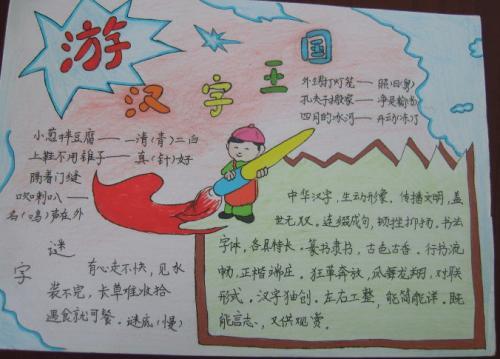 游
汉字王国
外甥打灯笼——照旧(舅)
孔夫子搬家——净是输(书)
四月的冰河——开动(冻)了
小葱拌豆腐——一清(青)二白
上鞋不用锥子——真(针)好
隔着门缝
吹喇叭——
名(鸣)声在外
谜
字
有心走不快，见水
装不完，长草难收拾
遇食就可餐．谜底：(慢)
中华汉字，生动形象，传播文明，盖
世无双．连缀成句，抑扬．书法
字体，各具特长．篆书隶书，古色古香．行书流
畅，正楷端庄．狂草奔放，龙翔，对联
形式．汉字独创．左右工整，能简能详．既
能言志，又供观赏．